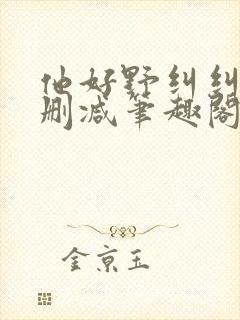 他好野纠纠
删减笔趣阁
金京玉